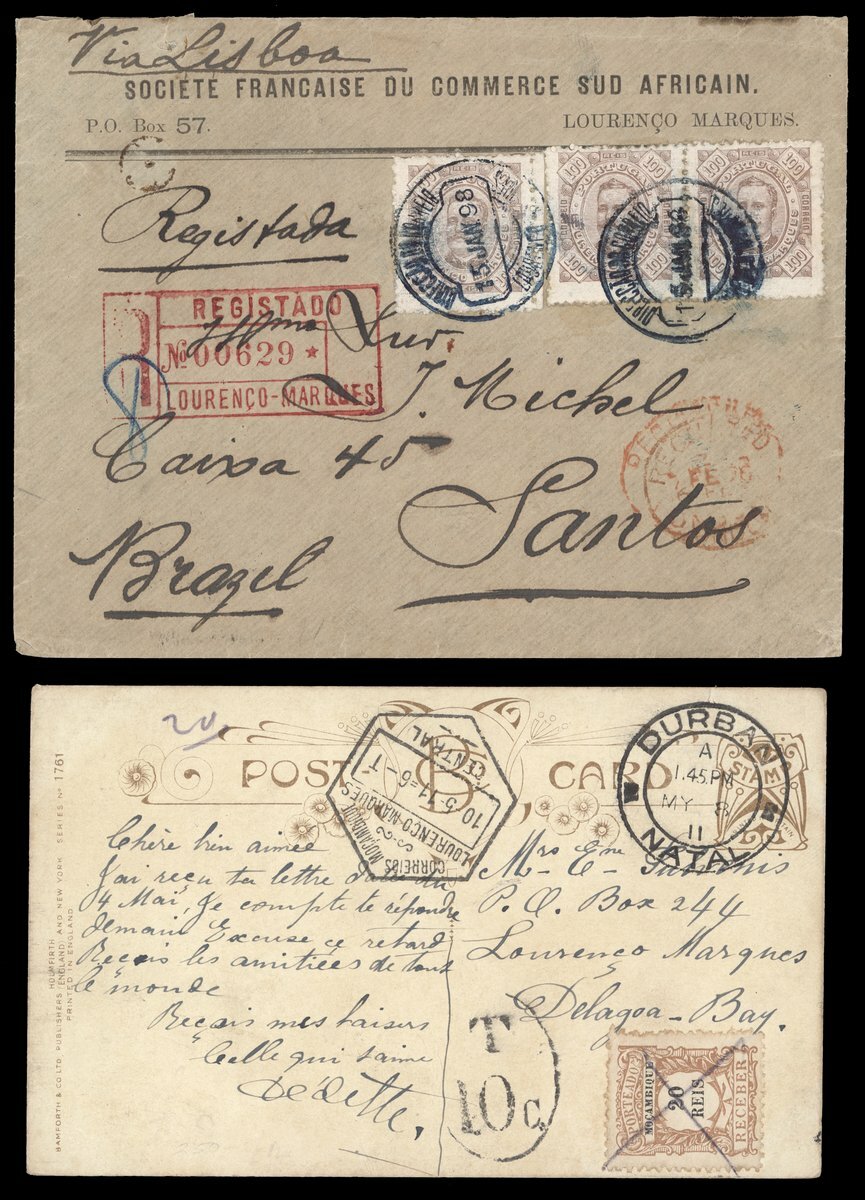 Via Lisboa
SOCIÉTÉ FRANCAISE DU COMMERCE SUD AFRICAIN.
P.O. Box 57.
LOURENÇO MARQUES.
Registada
100 REIS 100
PORTUGAL
CORREIO
100 100
15 JAN 98
REGISTADO
R Nº 00629 *
LOURENÇO-MARQUES
8
Snr
J. Michel
Caixa 45
Santos
Brazil
REGISTERED
FE 98
20
POST CARD
CORREIOS MOÇAMBIQUE
LOURENÇO-MARQUES
10-5-11=6-T
CENTRAL
DURBAN
A
1.45.PM
MY 8
11
NATAL
STAMP
Chère bien aimée
J'ai reçu ta lettre du
4 Mai, Je compte te répondre
demain Excuse ce retard
Reçois les amitiées de tout
le monde
Reçois mes baisers
Celle qui t'aime
Dédette,
Mrs
P.O. Box 244
Lourenço Marques
Delagoa-Bay.
T
10 C.
PORTEADO A RECEBER
MOÇAMBIQUE
20
REIS
HOLMFIRTH
BAMFORTH & CO LTD PUBLISHERS (ENGLAND) AND NEW YORK SERIES Nº 1761
PRINTED IN ENGLAND